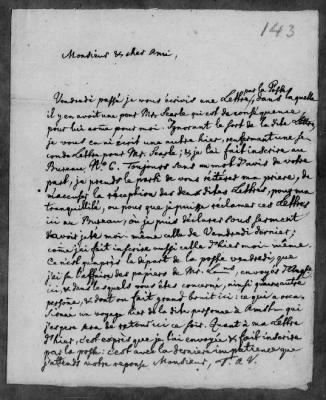 143
Monsieur & cher Ami,
par la Poste
Vendredi passé je vous écrivis une Lettre, dans laquelle
il y en avoit une pour Mr. Searle qui est de conséquence
pour lui come pour moi. Ignorant le sort de la dite Lettre,
je vous en écrit une autre hier, renfermant une se-
conde Lettre pour Mr. Searle; & je l'ai fait inscrire au
Bureau No. 6. Toujours sans un mot d'avis de votre
part, je prends le parti de vous réiterer ma priere, de
m'accuser la réception des deux dites Lettres, pour ma
tranquillité, ou pour que je puisse réclamer ces Lettres
ici au Bureau, où je puis déclarer sous serment
d'avoir jetté moi-même celle de Vendredi dernier;
come j'ai fait inscrire aussi celle d'hier moi-même.
Ce n'est qu'après le départ de la poste vendredi, que
j'ai su l'affaire des papiers de Mr. envoyés
ici, & dans lesquels vous êtes concerné, ainsi qu'une autre
persone, & dont on fait grand bruit ici: ce qui a occa-
sioné un voyage hier de la dite personne à Amst. qui
j'espere sera de retour ici ce soir. Quant à ma Lettre
d'hier, c'est exprès que je l'ai envoyée & fait inscrire
par la poste: c'est avec la derniere impatience que
j'attends votre reponse Monsieur,